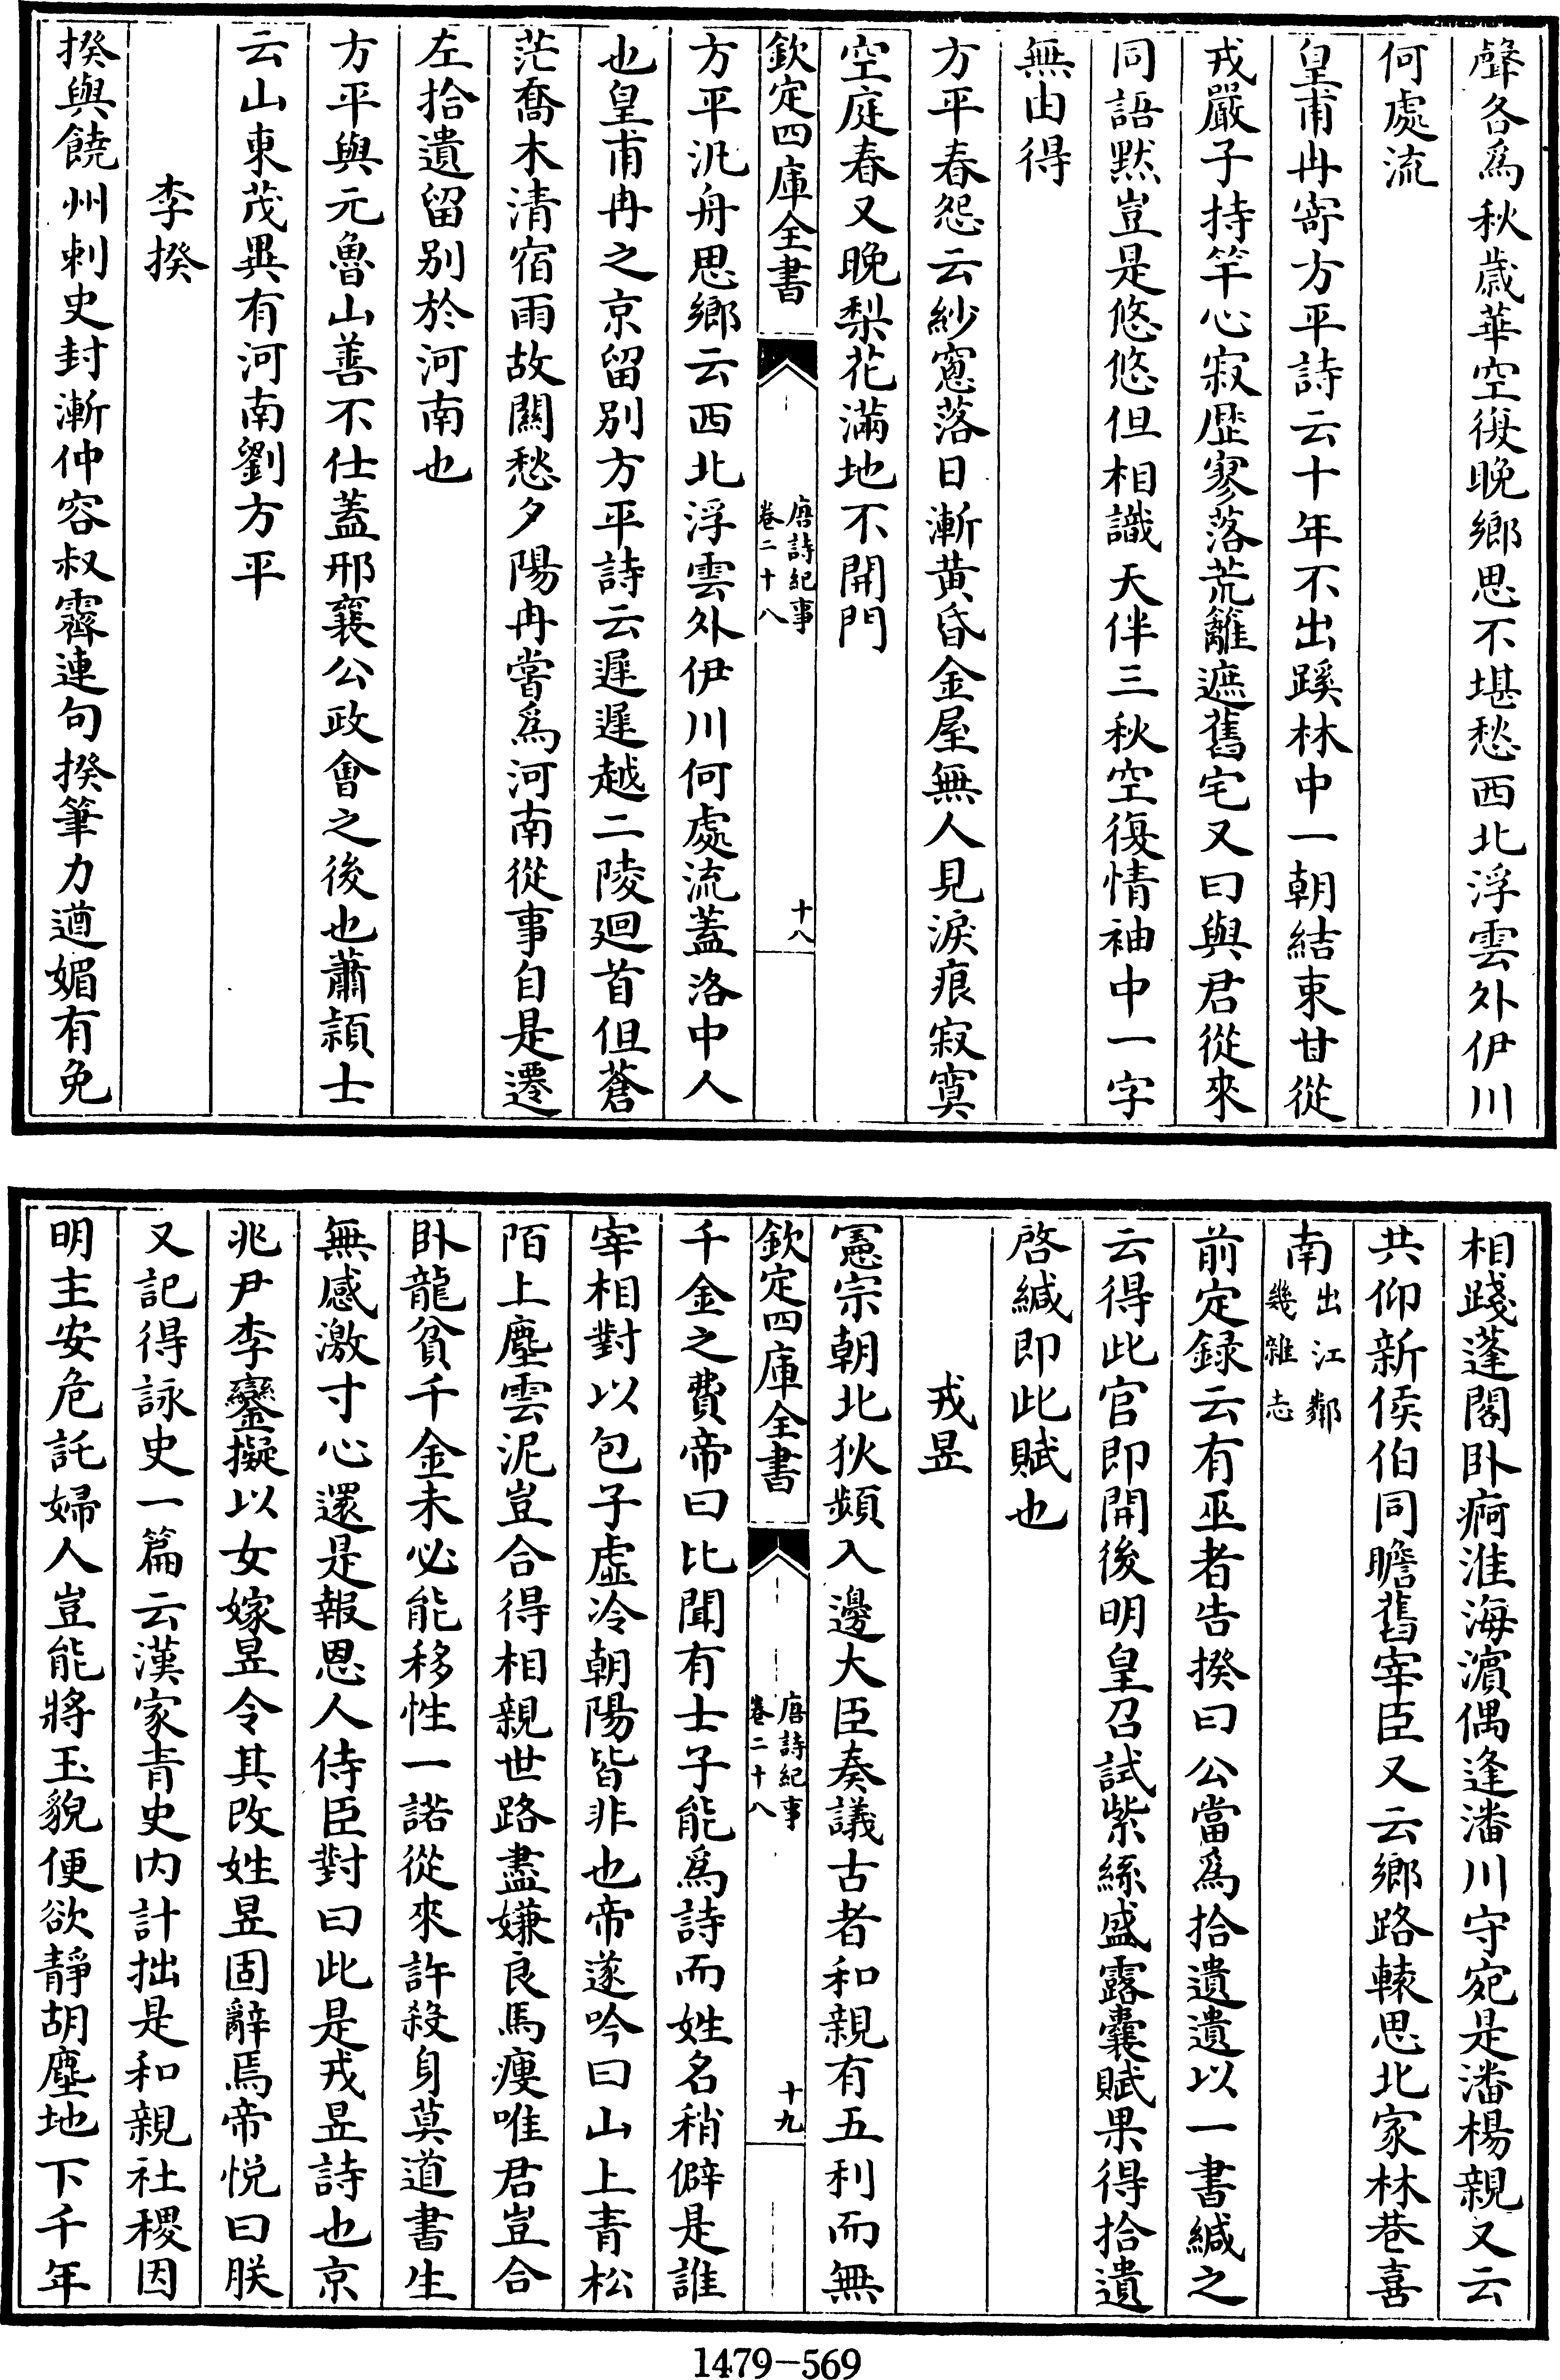 聲各爲秋歳華空復晚鄉思不堪愁西北浮雲外伊川
何處流
皇甫冉寄方平詩云十年不出蹊林中一朝結束甘從
戎嚴子持竿心寂歴寥落荒籬遮舊宅又曰與君從來
同語黙豈是悠悠但相識天伴三秋空復情袖中一字
無由得
方平春怨云紗窓落日漸黄昏金屋無人見淚痕寂寞
空庭春又晚梨花滿地不開門
欽定四庫全書
唐詩紀事
卷二十八
十八
方平汎舟思鄉云西北浮雲外伊川何處流蓋洛中人
也皇甫冉之京留别方平詩云遲遲越二陵廻首但蒼
茫喬木清宿雨故關愁夕陽冉嘗爲河南從事自是遷
左拾遺留别於河南也
方平與元魯山善不仕蓋邢襄公政會之後也蕭頴士
云山東茂異有河南劉方平
李揆
揆與饒州刺史封漸仲容叔霽連句揆筆力遒媚有免
相踐蓬閣卧痾淮海濵偶逢潘川守宛是潘楊親又云
共仰新侯伯同瞻舊宰臣又云鄉路轅思北家林巷喜
南
出江鄰
幾雜志
前定録云有巫者告揆曰公當爲拾遺遺以一書緘之
云得此官即開後明皇召試紫絲盛露囊賦果得拾遺
啓緘即此賦也
戎昱
憲宗朝北狄頻入邊大臣奏議古者和親有五利而無
欽定四庫全書
唐詩紀事
卷二十八
十九
千金之費帝曰比聞有士子能爲詩而姓名稍僻是誰
宰相對以包子虚冷朝陽皆非也帝遂吟曰山上青松
陌上塵雲泥豈合得相親世路盡嫌良馬瘦唯君豈合
卧龍貧千金未必能移性一諾從來許殺身莫道書生
無感激寸心還是報恩人侍臣對曰此是戎昱詩也京
兆尹李鑾擬以女嫁昱令其改姓昱固辭焉帝悦曰朕
又記得詠史一篇云漢家青史内計拙是和親社稷因
明主安危託婦人豈能將玉貌便欲靜胡塵地下千年
1479-569